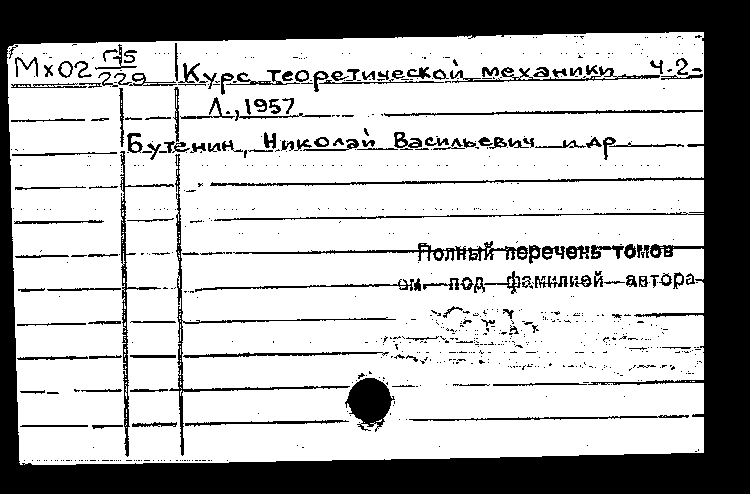 Мх02 Г-5/229 Курс теоретической механики. Ч.2-
Л., 1957.
Бутенин, Николай Васильевич и др.
Полный перечень томов
см. под фамилией автора